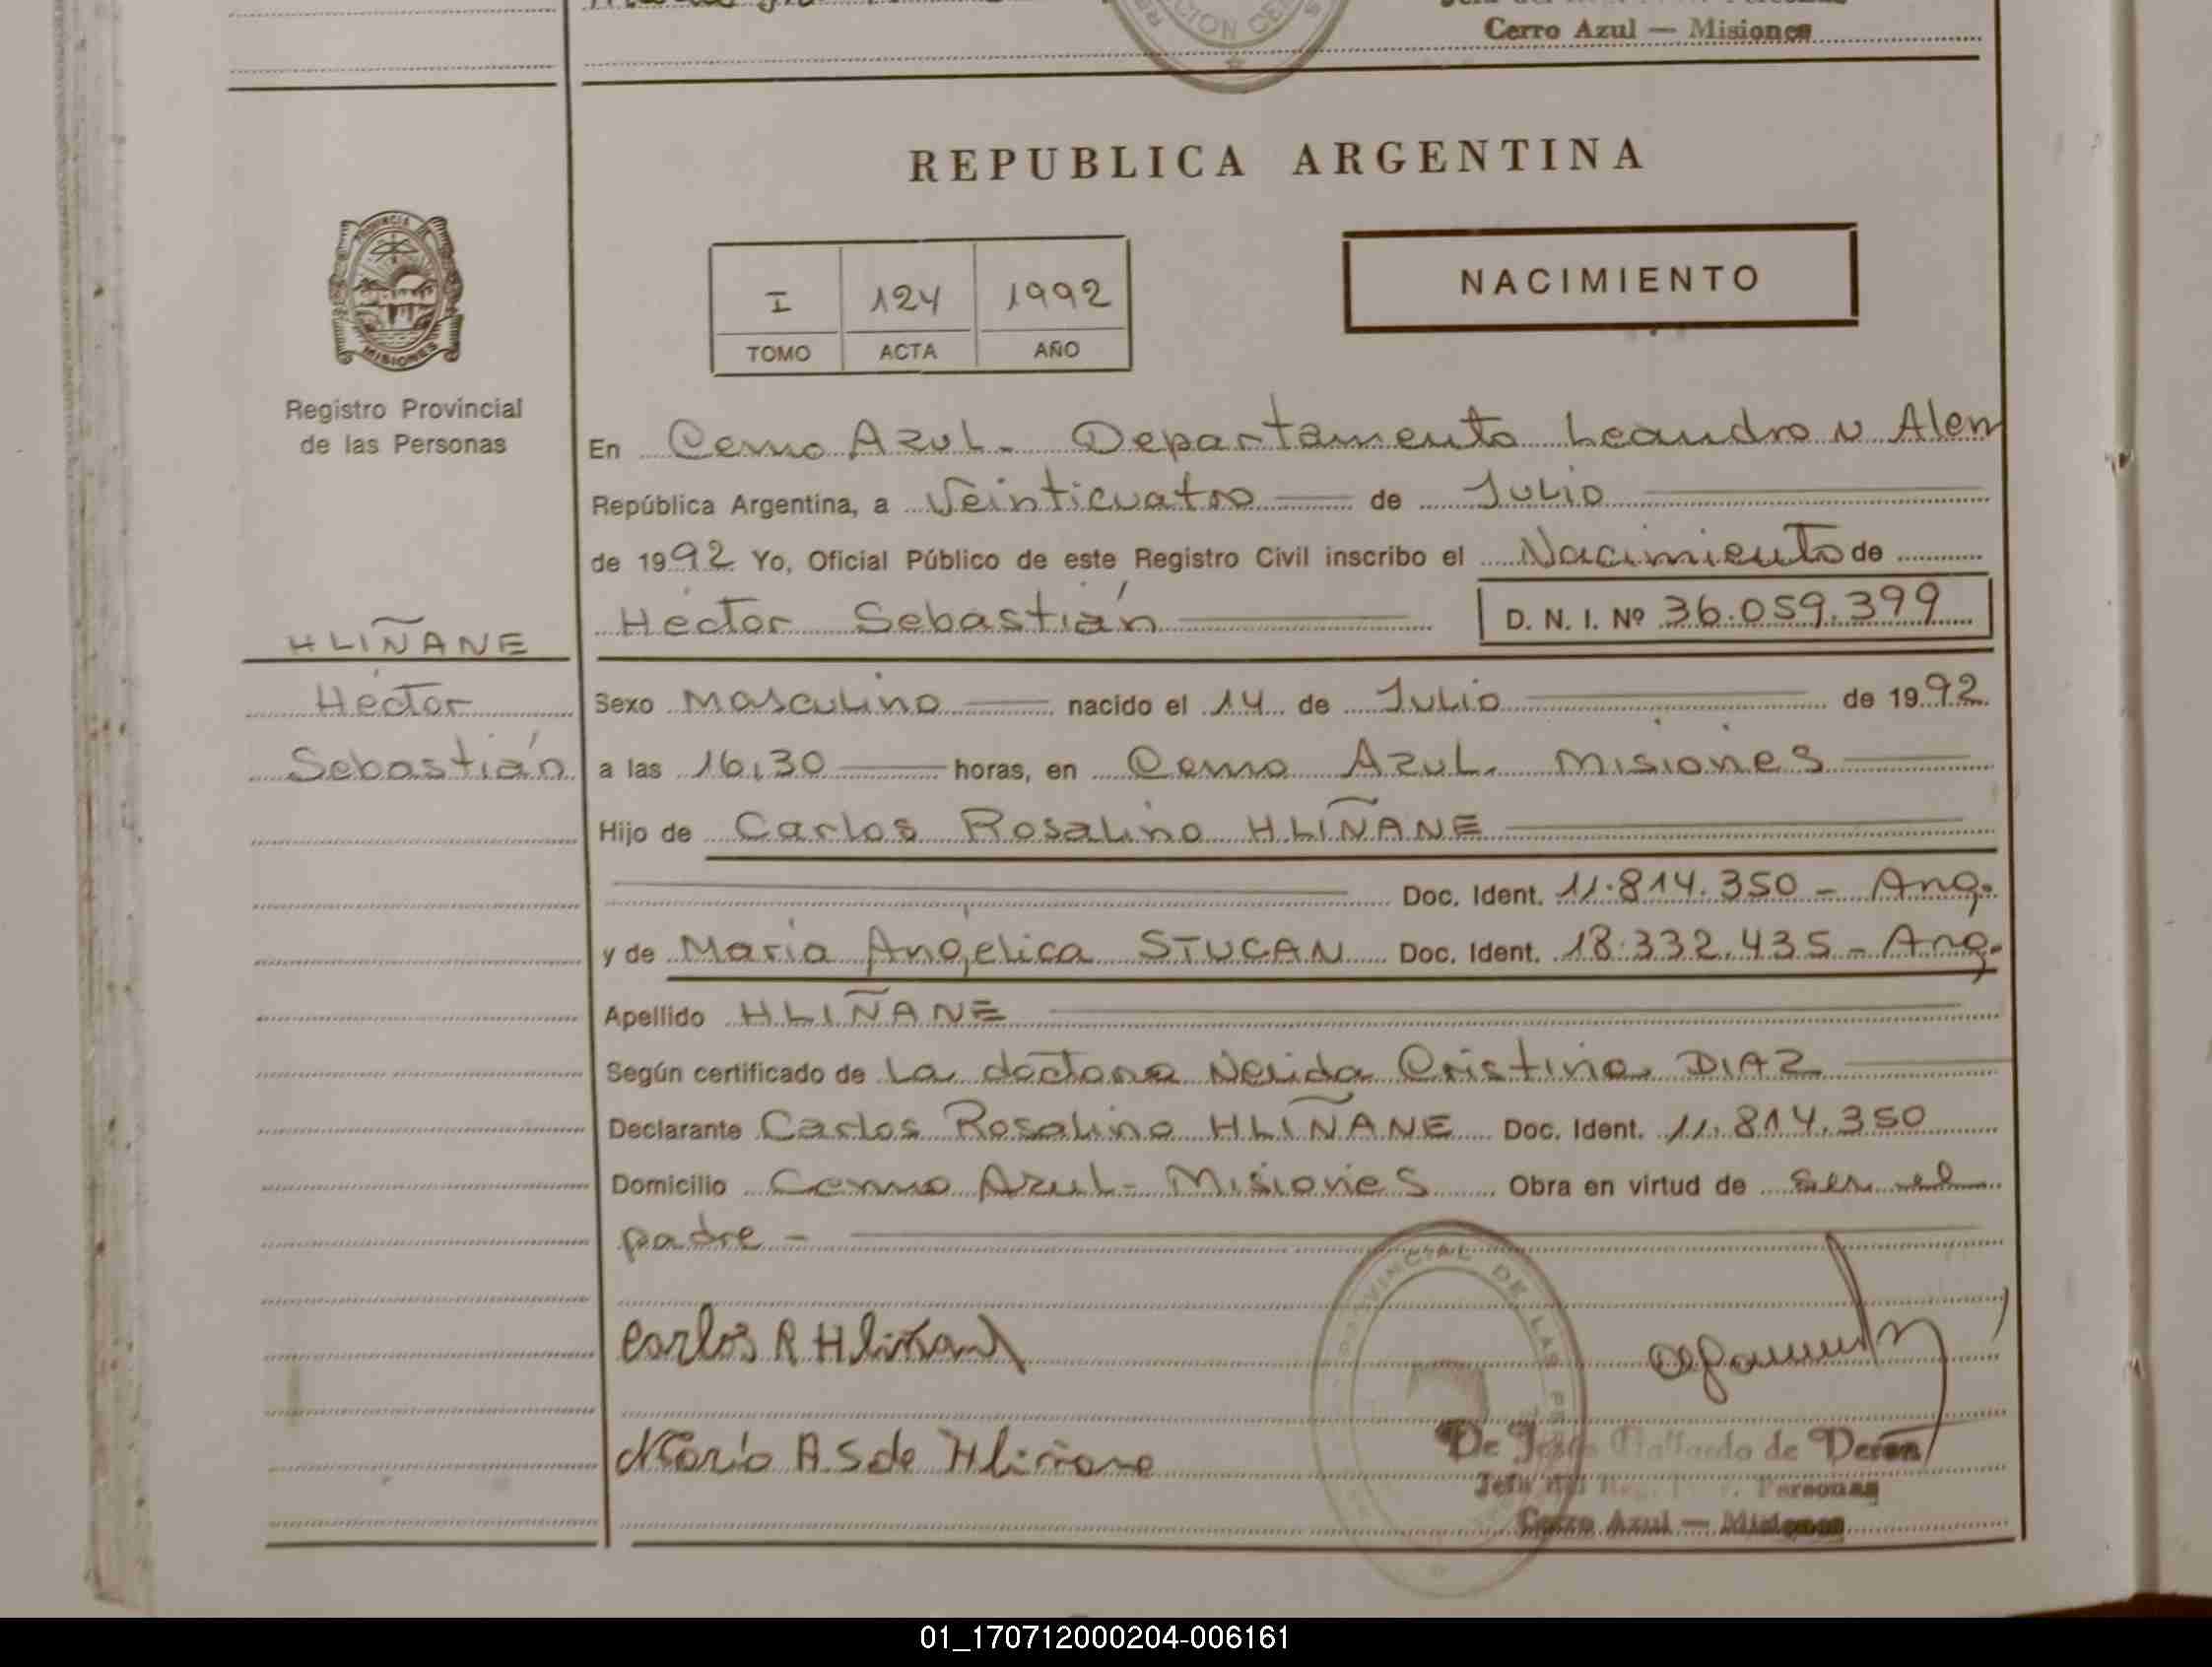 Cerro Azul — Misiones
REPUBLICA ARGENTINA
PROVINCIA DE
MISIONES
Registro Provincial
de las Personas
I 124 1992
TOMO ACTA AÑO
NACIMIENTO
En Cerro Azul - Departamento Leandro N Alem
República Argentina, a Veinticuatro de Julio
de 1992 Yo, Oficial Público de este Registro Civil inscribo el Nacimiento de
Héctor Sebastián D. N. I. Nº 36.059.399
HLIÑANE
Héctor
Sebastián
Sexo Masculino nacido el 14 de Julio de 1992
a las 16,30 horas, en Cerro Azul. Misiones
Hijo de Carlos Rosalino HLIÑANE
Doc. Ident. 11.814.350 - Arg.
y de María Angelica STUCAN Doc. Ident. 18.332.435 - Arg.
Apellido HLIÑANE
Según certificado de La doctora Nerida Cristina DIAZ
Declarante Carlos Rosalino HLIÑANE Doc. Ident. 11.814.350
Domicilio Cerro Azul - Misiones Obra en virtud de ser el
padre -
Carlos R Hliñane
María A. S de Hliñane
De Jesús Gallardo de Deron
Jefa del Personas
Cerro Azul — Misiones
01_170712000204-006161